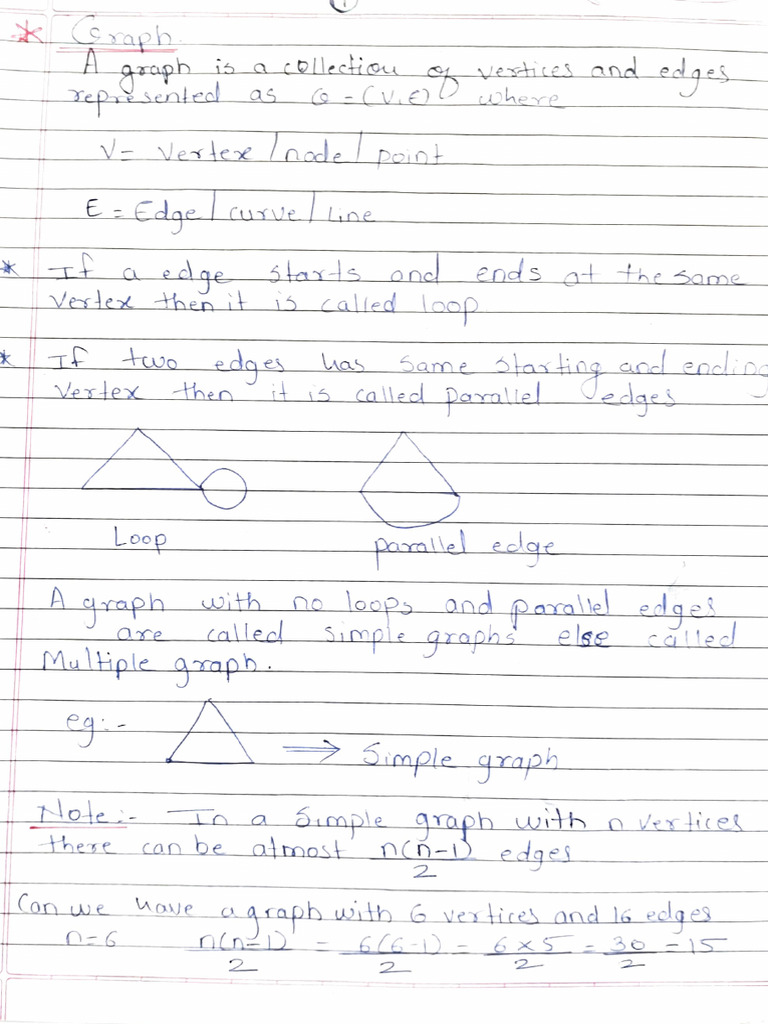 1
* Graph
A graph is a collection of vertices and edges
represented as G = (V, E) where
V = Vertex / node / point
E = Edge / curve / Line
* If a edge starts and ends at the same
Vertex then it is called loop
* If two edges has same starting and ending
Vertex then it is called parallel edges
Loop parallel edge
A graph with no loops and parallel edges
are called simple graphs else called
Multiple graph.
eg:- ⇒ Simple graph
Note:- In a simple graph with n vertices
there can be atmost n(n-1)/2 edges
Can we have a graph with 6 vertices and 16 edges
n=6 n(n-1)/2 = 6(6-1)/2 = 6×5/2 = 30/2 = 15